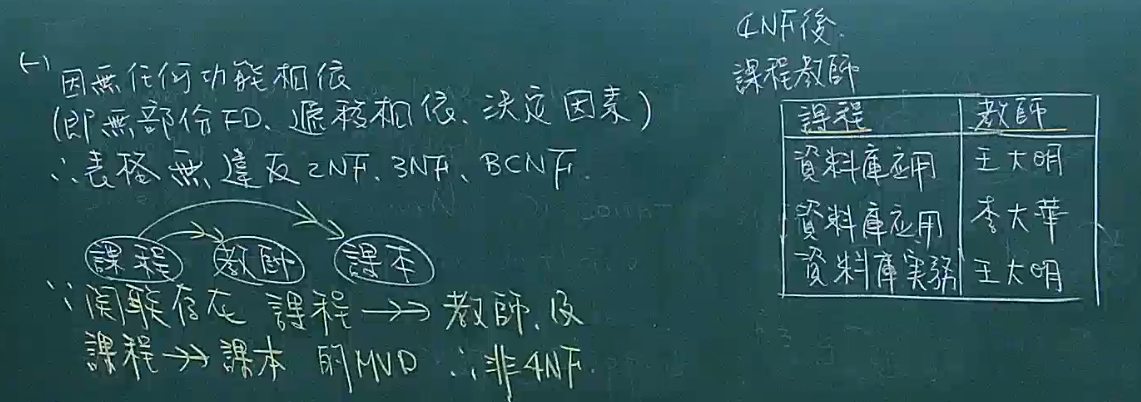 (一)因無任何功能相依
(即無部份FD、遞移相依、決定因素)
∴表格無違反2NF、3NF、BCNF.
課程 教師 課本
∵関聯存在 課程→→教師、及
課程→→課本 的MVD ∴非4NF.
4NF後.
課程教師
課程 教師
資料庫应用 王大明
資料庫应用 李大華
資料庫実務 王大明